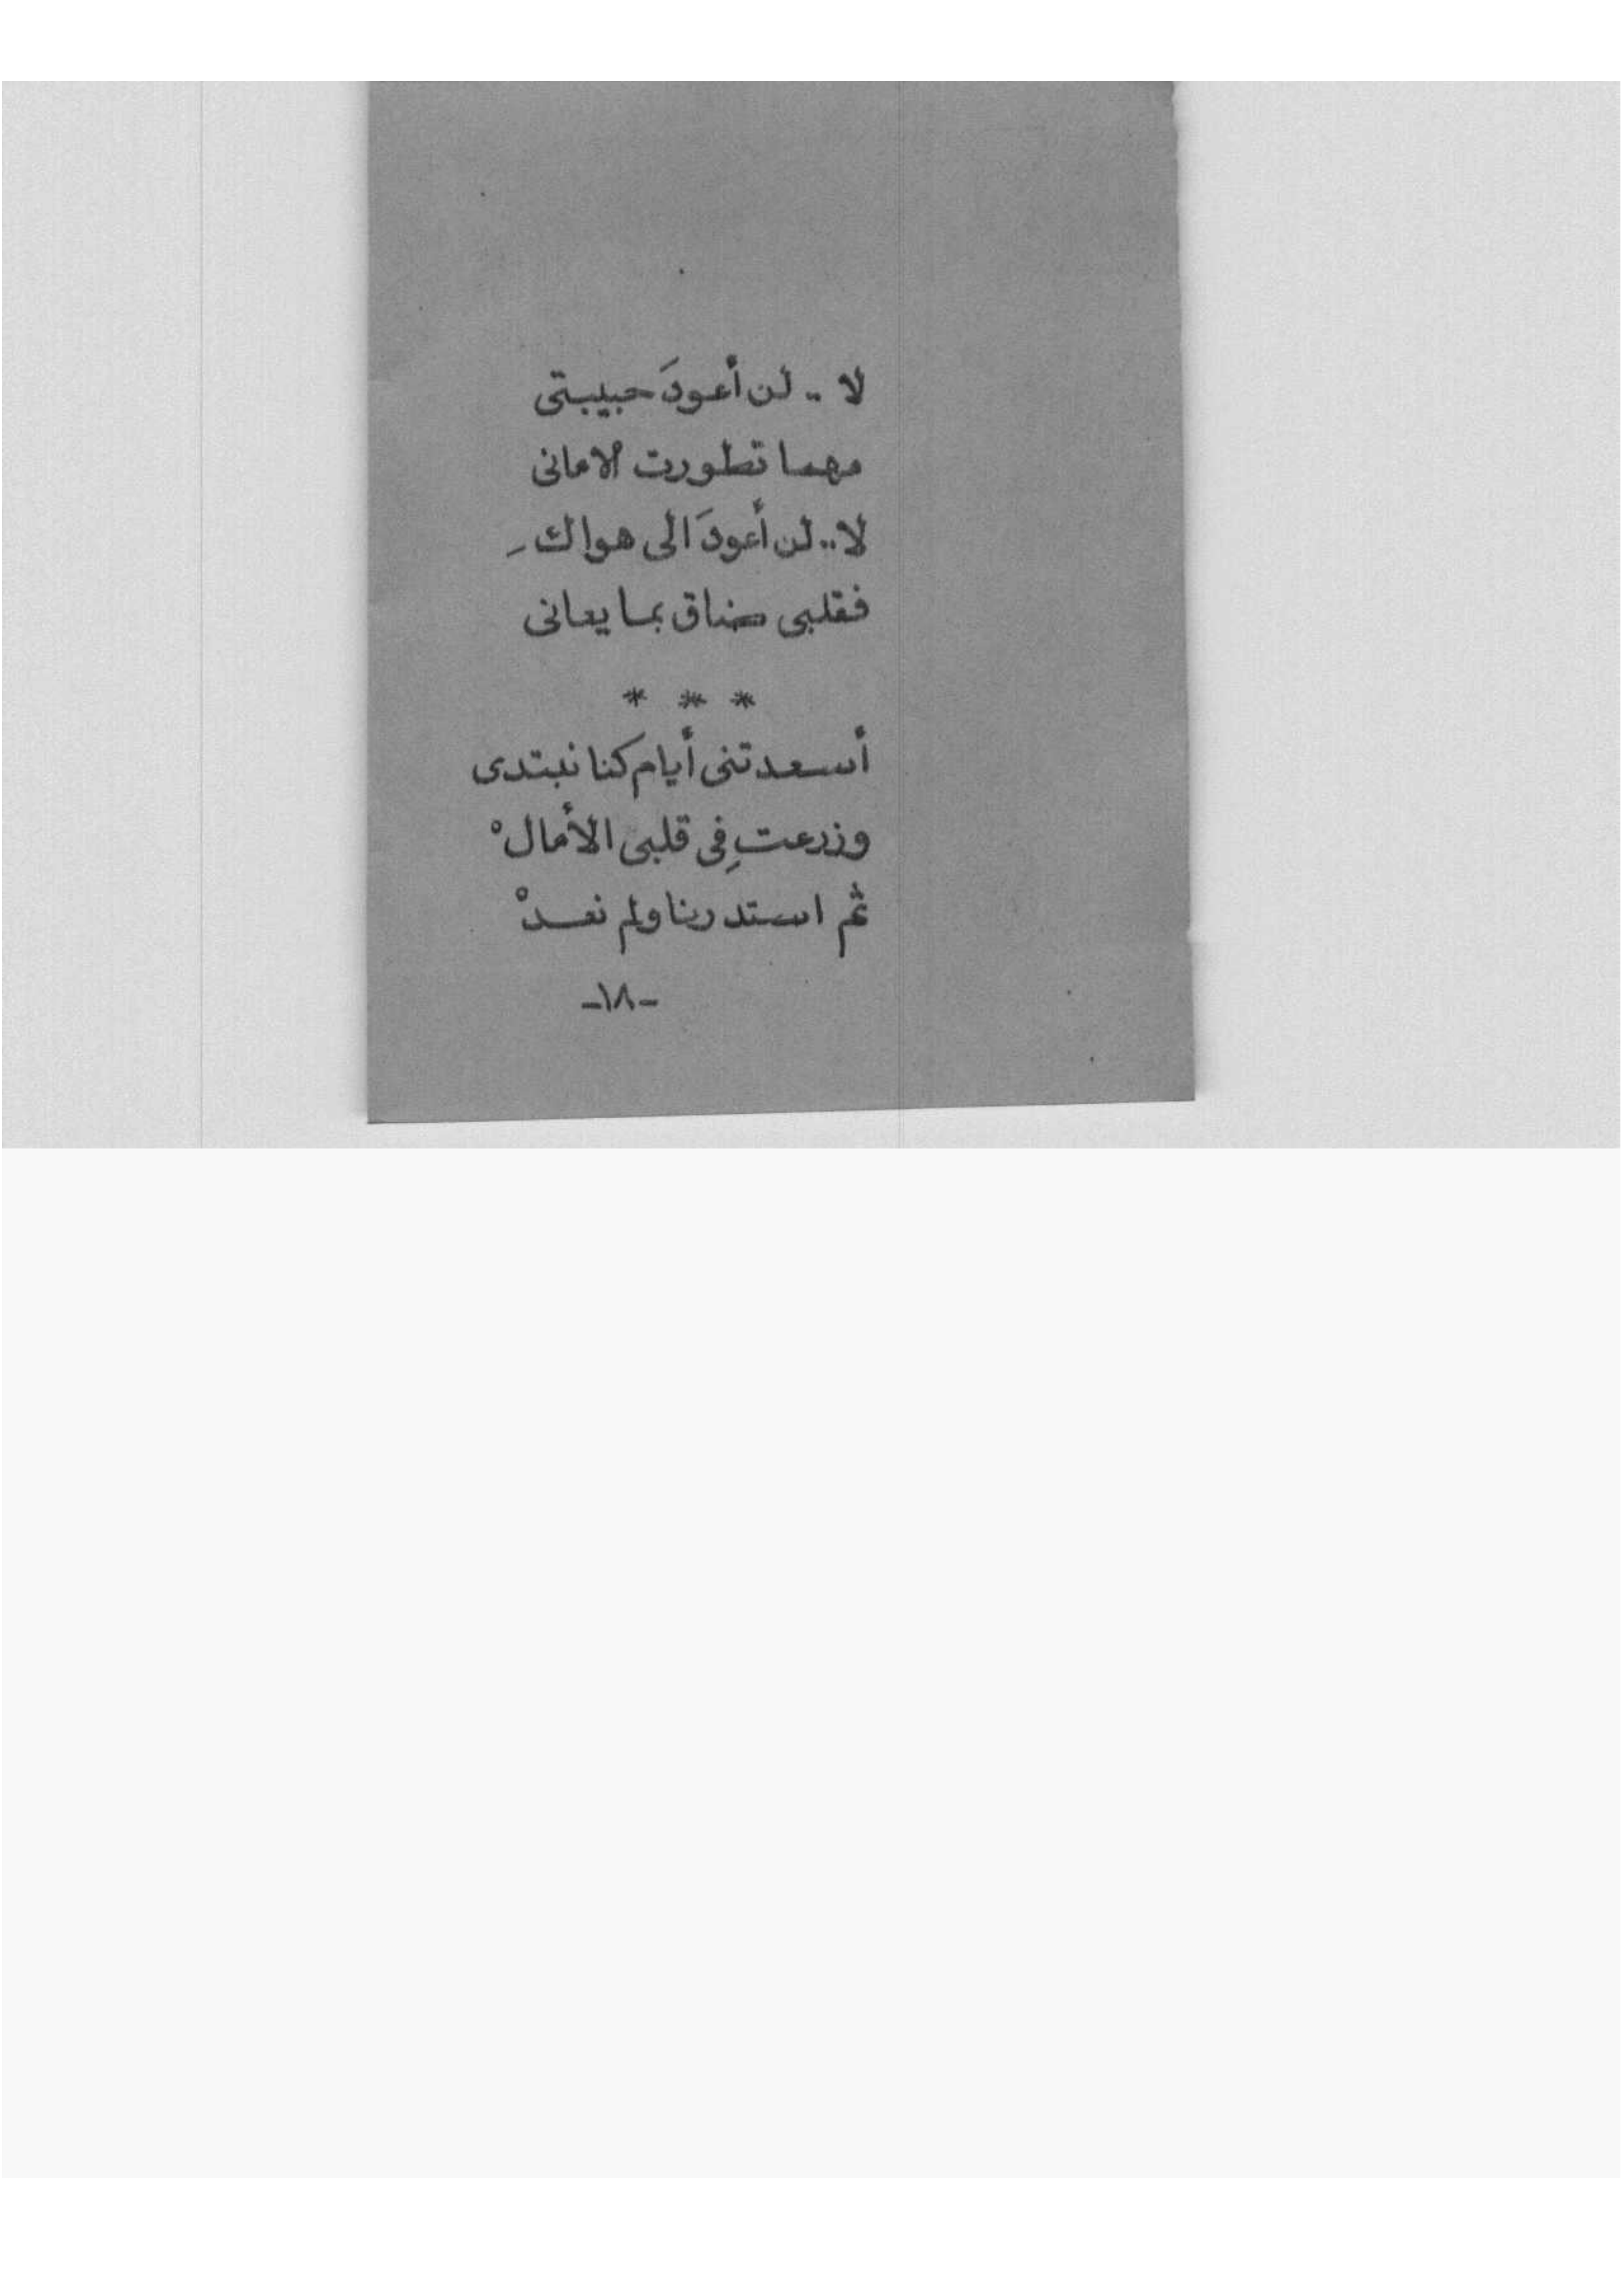 لا .. لن أعودَ حبيبتى
مهما تطورت الامانى
لا .. لن أعودَ الى هواكِ
فقلبى ضاق بما يعانى
* * *
أسعدتنى أيام كنا نبتدى
وزرعتِ فى قلبى الأمالْ
ثم استدرنا ولم نعدْ
-١٨-